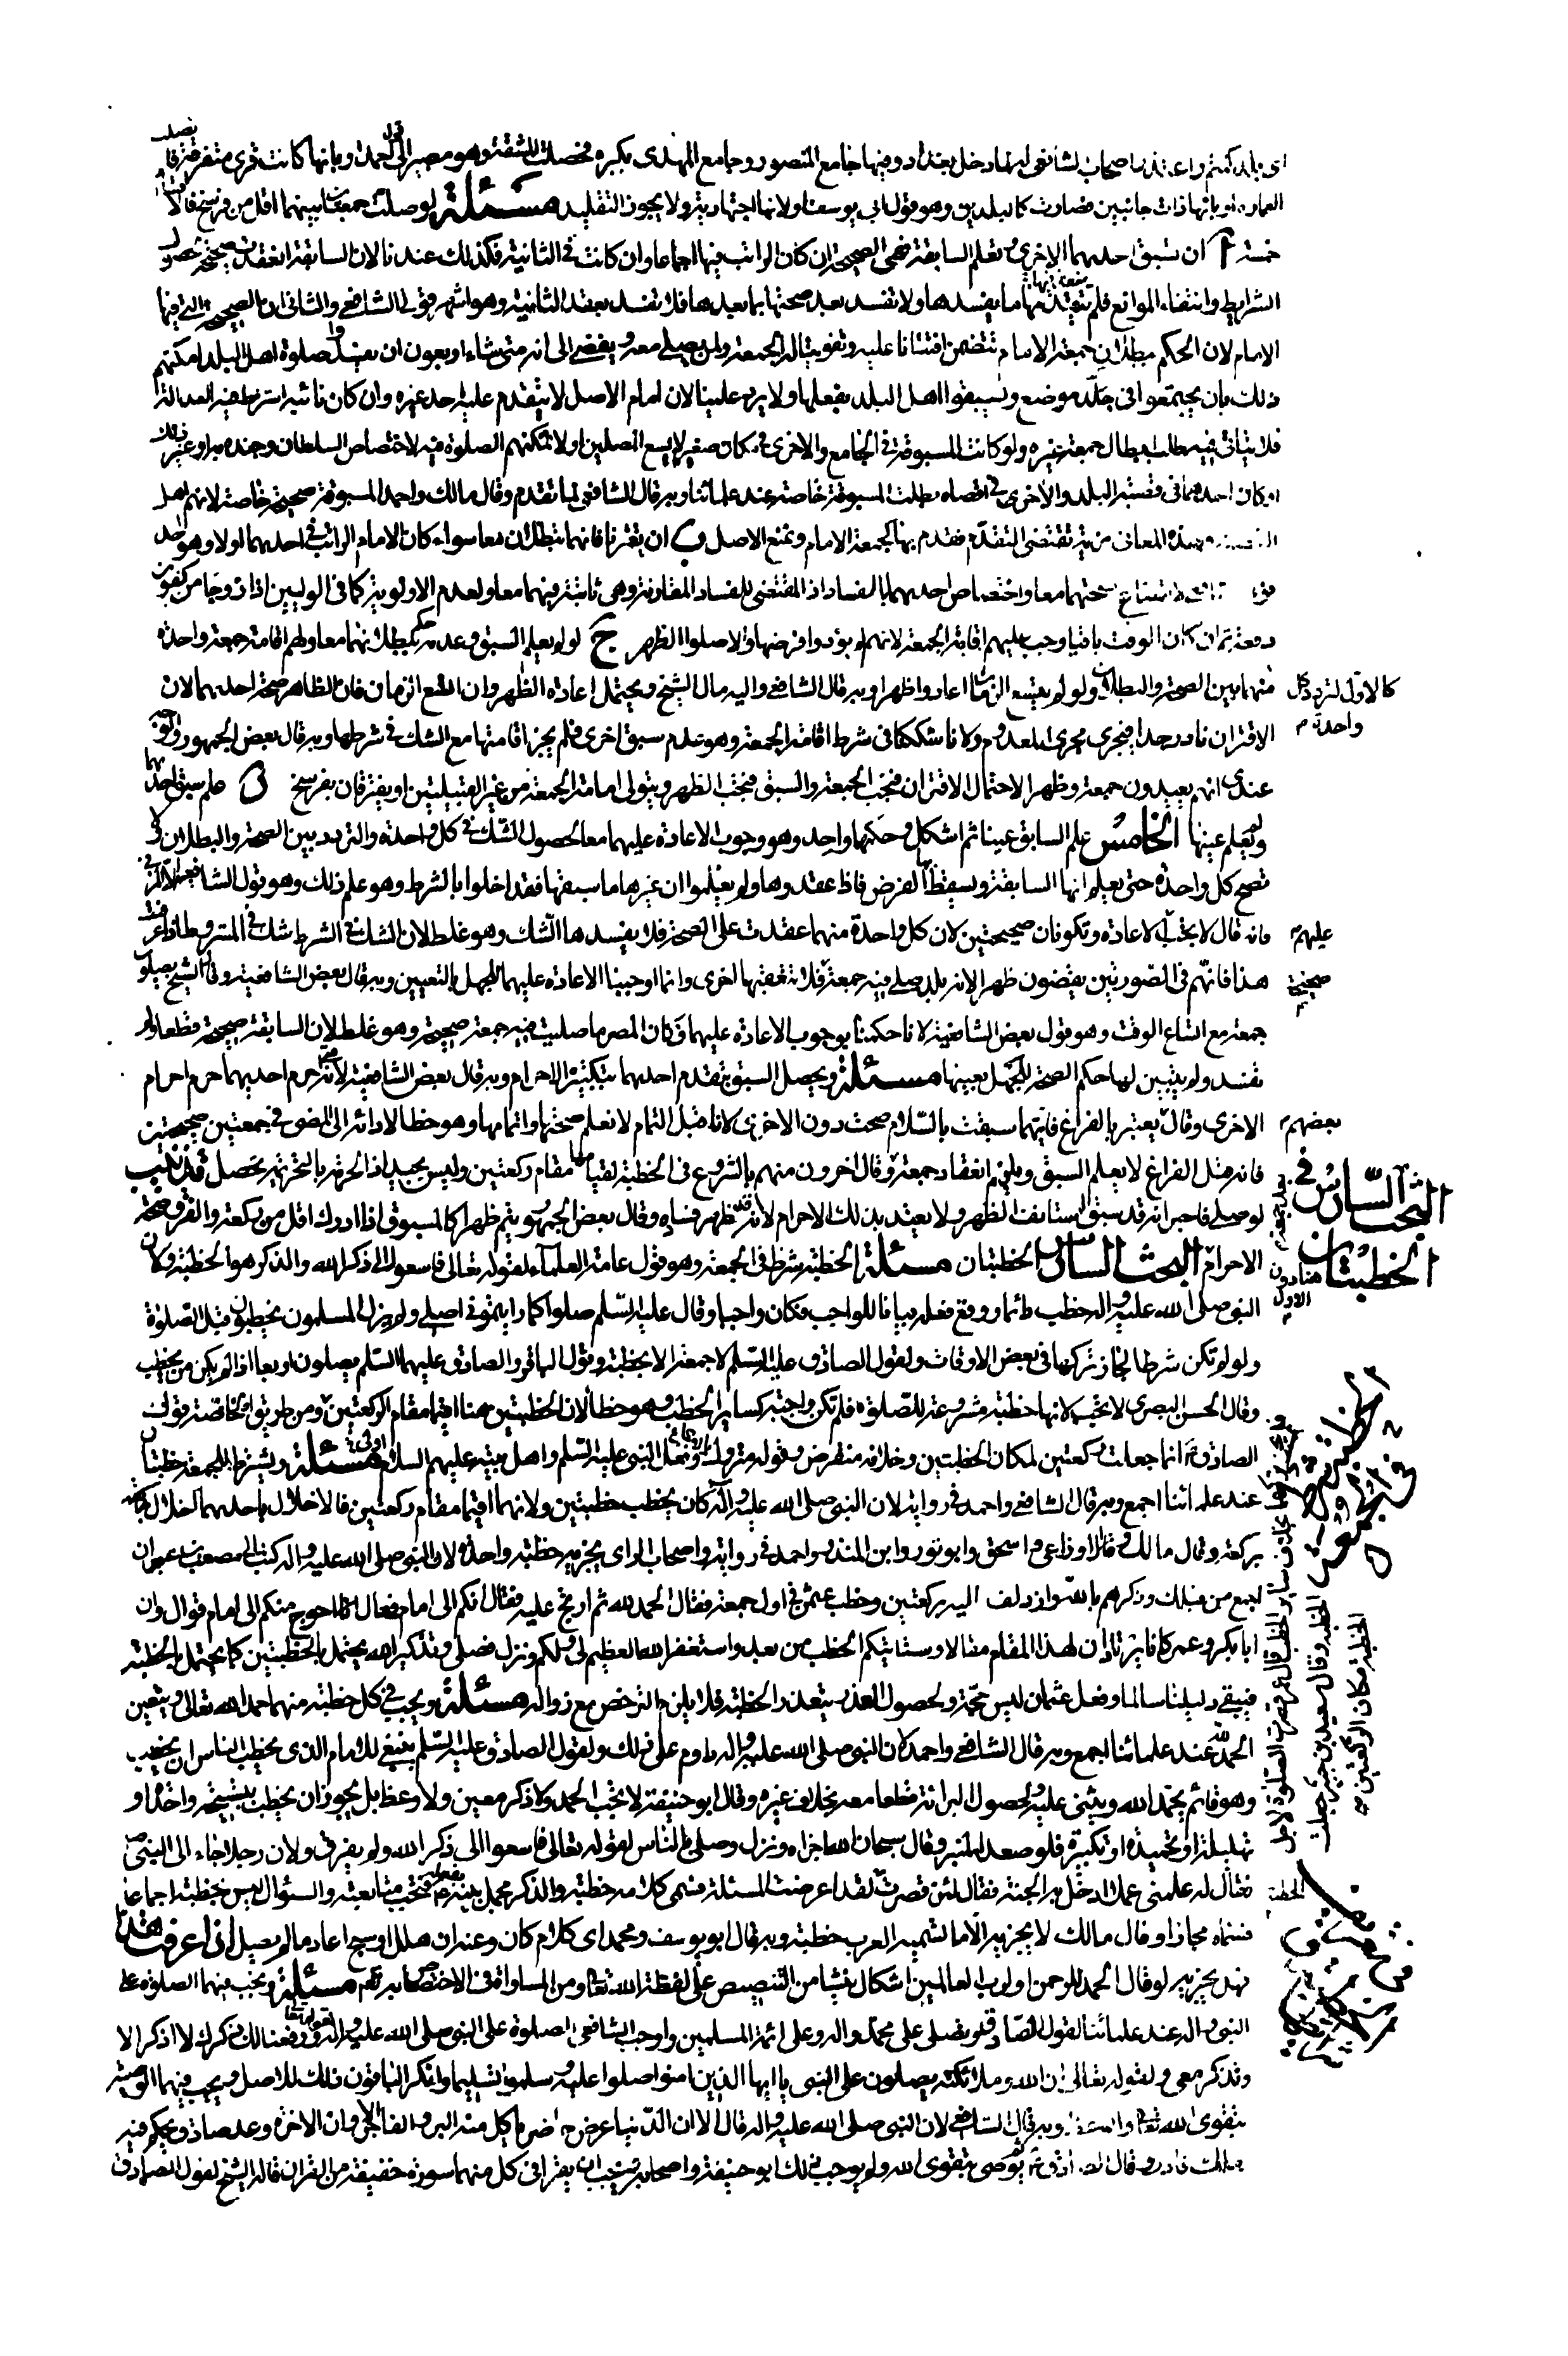 اى بلد كنتم واعتذر اصحاب الشافعى لما دخل بغداد وفيها جامع المنصور وجامع المهدى بكبره فحصلت المشقة وهو مصير الى قول احمد وبانها كانت قرى متفرقة فاتصلت
العمارة او بانها ذات جانبين فصارت كالبلدين وهو قول ابى يوسف ولانها اجتهادية ولا يجوز التقليد مسئلة لو صلت جمعتان بينهما اقل من فرسخ فالاقسام
خمسة آ ان تسبق احديهما الاخرى وتعلم السابقة فهى الصحيحة ان كان الراتب فيها اجماعا وان كانت فى الثانية فكذلك عندنا لان السابقة انعقدت صحيحة لحصول
الشرايط وانتفاء الموانع فلم يتعقبها ما يفسدها ولا تفسد بعد صحتها بما بعدها فلا تفسد بعقد الثانية وهو اشهر قولى الشافعى والثانى ان الصحيحة التى فيها
الامام لان الحكم ببطلان جمعة الامام تتضمن افتئاتا عليه وتفويتا له الجمعة ولمن يصلى معه ويفضى الى انه متى شاء اربعون ان يفسدوا صلوة اهل البلد امكنهم
ذلك بان يجتمعوا فى موضع ويسبقوا اهل البلد بفعلها ولا يرد علينا لان امام الاصل لا يتقدم عليه احد غيره وان كان نائبه اشترط فيه العدالة
فلا يتأتى فيه طلب ابطال جمعة غيره ولو كانت المسبوقة فى الجامع والاخرى فى مكان صغير لا يسع المصلين او لا يمكنهم الصلوة فيه لاختصاص السلطان وجنده به او غير ذلك
او كان احدهما فى قصبة البلد والاخرى فى اقصاه بطلت المسبوقة خاصة عند علمائنا وبه قال الشافعى لما تقدم وقال مالك واحمد المسبوقة صحيحة خاصة لانهم اهل
القصبة وهذه المعانى مزية تقتضى التقدم فقدم بها كجمعة الامام ونمنع الاصل ب ان يقترنا فانهما تبطلان معا سواء كان الامام الراتب فى احديهما او لا وهو احد
قولى الشافعى لامتناع صحتهما معا واختصاص احديهما بالفساد اذ المقتضى للفساد المقارنة وهى ثابتة فيهما معا ولعدم الاولوية كما فى الوليين اذا زوجا من كفوين
دفعة ثم ان كان الوقت باقيا وجب عليهم اقامة الجمعة لانهم لم يؤدوا فرضها والا صلوا الظهر ج لو لم يعلم السبق وعدمه حكم ببطلانهما معا ولهم اقامة جمعة واحدة
كالاول لتردد كل واحدة
منهما بين الصحة والبطلان ولو لم يتسع الزمان اعادوا ظهرا وبه قال الشافعى واليه مال الشيخ ويحتمل اعادة الظهر وان اتسع الزمان فان الظاهر صحة احديهما لان
الاقتران نادر جدا فيجرى مجرى المعدوم ولانا شككنا فى شرط اقامة الجمعة وهو عدم سبق اخرى فلم يجز اقامتها مع الشك فى شرطها وبه قال بعض الجمهور والوجه
عندى انهم يعيدون جمعة وظهرا لاحتمال الاقتران فتجب الجمعة والسبق فتجب الظهر ويتولى امامة الجمعة من غير القبيلتين او يفترقان بفرسخ د علم سبق احديهما
ولم يعلم عينها الخامس علم السابق عينا ثم اشكل وحكمهما واحد وهو وجوب الاعادة عليهما معا لحصول الشك فى كل واحدة والتردد بين الصحة والبطلان ولا
تصح كل واحدة حتى يعلم انها السابقة ويسقط بها الفرض فاذا عقدوها ولم يعلموا ان غيرها ما سبقها فقد اخلوا بالشرط وهو علم ذلك وهو قول الشافعى الا المزنى
عليهم
فانه قال لا يجب الاعادة وتكونان صحيحتين لان كل واحدة منهما عقدت على الصحة فلا يفسدها الشك وهو غلط لان الشك فى الشرط شك فى المشروط اذا عرفت
صحيحة
هذا فانهم فى الصورتين يقضون ظهرا لانه بلد صلى فيه جمعة فلا تتعقبها اخرى وانما اوجبنا الاعادة عليهما للجهل بالتعيين وبه قال بعض الشافعية وقال الشيخ يصلون
جمعة مع اتساع الوقت وهو قول بعض الشافعية لانا حكمنا بوجوب الاعادة عليهما فكان المصر ما صليت فيه جمعة صحيحة وهو غلط لان السابقة صحيحة قطعا ولم
تفسد ولم يتبين لها حكم الصحة للجهل بعينها مسئلة ويحصل السبق بتقدم احديهما بتكبيرة الاحرام وبه قال بعض الشافعية لانه متى حرم احديهما حرم احرام
بعضهم
الاخرى وقال يعتبر بالفراغ فايتهما سبقت بالسلام صحت دون الاخرى لانا قبل التمام لا نعلم صحتها واتمامها وهو خطا لادائه الى الخوض فى جمعتين صحيحتين
فانه قبل الفراغ لا يعلم السبق ويلزم انعقاد جمعة وقال اخرون منهم بالشروع فى الخطبة لقيامها مقام ركعتين وليس بجيد اذ الحرمة بالتحريمة تحصل تذنيب
لو صلى فاخبر انه قد سبق استانف الظهر ولا يعتد بذلك الاحرام لانه قد ظهر فساده وقال بعض الجمهور يتم ظهرا كالمسبوق اذا ادرك اقل من ركعة والفرق صحة
البحث السادس فى الخطبتان
الاحرام هنا دون الاول البحث السادس الخطبتان مسئلة الخطبة شرط فى الجمعة وهو قول عامة العلماء لقوله تعالى فاسعوا الى ذكر الله والذكر هو الخطبة ولان
النبى صلى الله عليه واله خطب دائما ووقع فعله بيانا للواجب فكان واجبا وقال عليه السلم صلوا كما رايتمونى اصلى ولم يزل المسلمون يخطبون قبل الصلوة
ولو لم تكن شرطا لجاز تركها فى بعض الاوقات ولقول الصادق عليه السلم لا جمعة الا بخطبة وقول الباقر والصادق عليهما السلم يصلون اربعا اذا لم يكن من يخطب
وقال الحسن البصرى لا يجب لانها خطبة مشروعة للصلوة فلم تكن واجبة كساير الخطب وهو خطأ لان الخطبتين هنا اقيما مقام الركعتين ومن طريق الخاصة قول
الصادق انما جعلت ركعتين لمكان الخطبتين وخلافه منقرض وقوله متروك بالاجماع وفعل النبى عليه السلم واهل بيته عليهم السلام اولى مسئلة ويشترط للجمعة خطبتان
عند علمائنا اجمع وبه قال الشافعى واحمد فى رواية لان النبى صلى الله عليه واله كان يخطب خطبتين ولانهما اقيما مقام ركعتين فالاخلال باحديهما اخلال
بركعة وقال مالك والاوزاعى واسحق وابو ثور وابن المنذر واحمد فى رواية واصحاب الراى يجزيه خطبة واحدة لان النبى صلى الله عليه واله كتب الى مصعب بن عمير ان
اجمع من قبلك وذكرهم بالله وازدلف اليه بركعتين وخطب عثمن فى اول جمعة فقال الحمد لله ثم ارتج عليه فقال انكم الى امام فعال احوج منكم الى امام قوال وان
ابا بكر وعمر كانا يرتادان لهذا المقام مقالا وستاتيكم الخطب من بعد واستغفر الله العظيم لى ولكم ونزل فصلى وتذكير الله يحتمل بالخطبتين كما يحتمل بالخطبة
فيبقى دليلنا سالما وفعل عثمان ليس حجة ولحصول العذر بتعذر الخطبة فلا يلزم الترخص مع زواله مسئلة ويجب فى كل خطبة منهما حمد الله تعالى ويتعين
الحمد لله عند علمائنا اجمع وبه قال الشافعى واحمد لان النبى صلى الله عليه واله داوم على ذلك ولقول الصادق عليه السلم ينبغى للامام الذى يخطب الناس ان يخطب
وهو قائم يحمد الله ويثنى عليه ولحصول البرائة قطعا معه بخلاف غيره وقال ابو حنيفة لا يجب الحمد ولا ذكر معين ولا وعظ بل يجوز ان يخطب بتسبيحة واحدة او
تهليلة او تحميدة او تكبيرة فلو صعد المنبر وقال سبحان الله اجزاه ونزل وصلى بالناس لقوله تعالى فاسعوا الى ذكر الله ولم يفرق ولان رجلا جاء الى النبى ص
فقال له علمنى عملا ادخل به الجنة فقال لئن قصرت لقد اعرضت المسئلة فسمى كلامه خطبة والذكر مجمل بينه بفعله فتجب متابعته والسؤال ليس بخطبة اجماعا
فسماه مجازا وقال مالك لا يجزيه الا ما تسميه العرب خطبة وبه قال ابو يوسف ومحمد اى كلام كان وعنه ان هلل او سبح اعاد ما لم يصل اذا عرفت هذا
فهل يجزيه لو قال الحمد للرحمن او لرب العالمين اشكال ينشا من التنصيص على لفظة الله تعالى ومن المساواة فى الاختصاص به تعالى مسئلة وتجب فيهما الصلوة على
النبى واله عند علمائنا لقول الصادق ويصلى على محمد واله وعلى ائمة المسلمين واوجب الشافعى الصلوة على النبى صلى الله عليه واله لقوله تعالى ورفعنا لك ذكرك لا اذكر الا
وتذكر معى ولقوله تعالى ان الله وملائكته يصلون على النبى يا ايها الذين امنوا صلوا عليه وسلموا تسليما وانكر الباقون ذلك للاصل ويجب فيهما الوصية
بتقوى الله تعالى وبه قال الشافعى لان النبى صلى الله عليه واله قال الا ان الدنيا عرض حاضر ياكل منه البر والفاجر الا وان الاخرة وعد صادق يحكم فيه
ملك قادر وقال يوصى بتقوى الله ولم يوجب ذلك ابو حنيفة واصحابه ويجب ان يقرا فى كل منهما سورة خفيفة من القران قاله الشيخ لقول الصادق